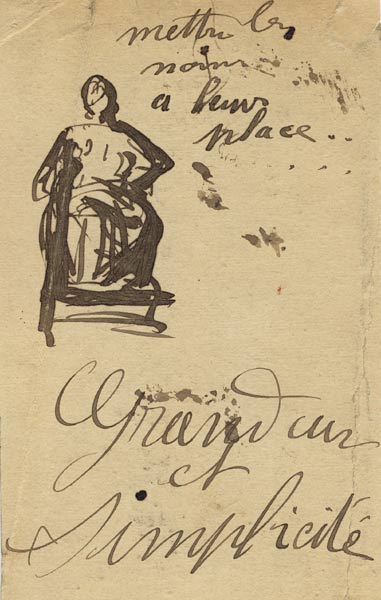 mettre les
noirs
a leur
place..
....
Grandeur
et
Simplicité